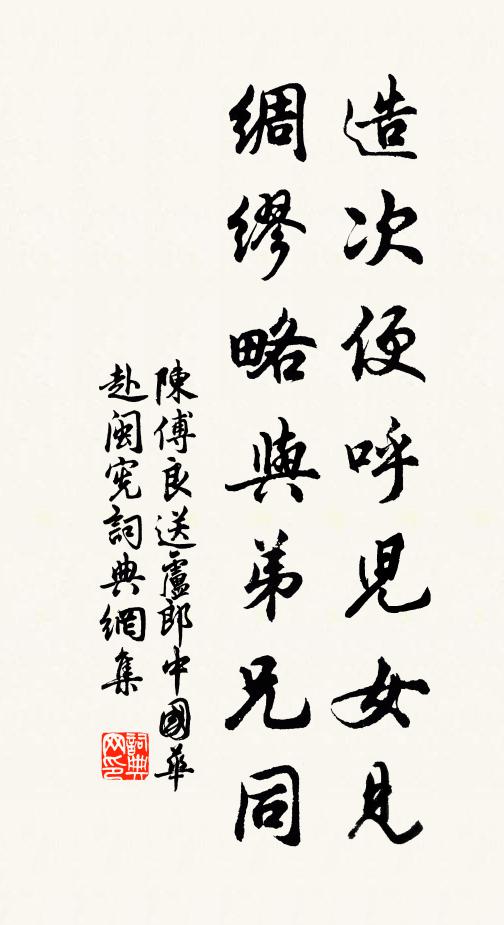 造次便呼兒女見
綢繆略與弟兄同
陳傅良送盧郎中國華
赴閩宪詞典網集
詞典
网印